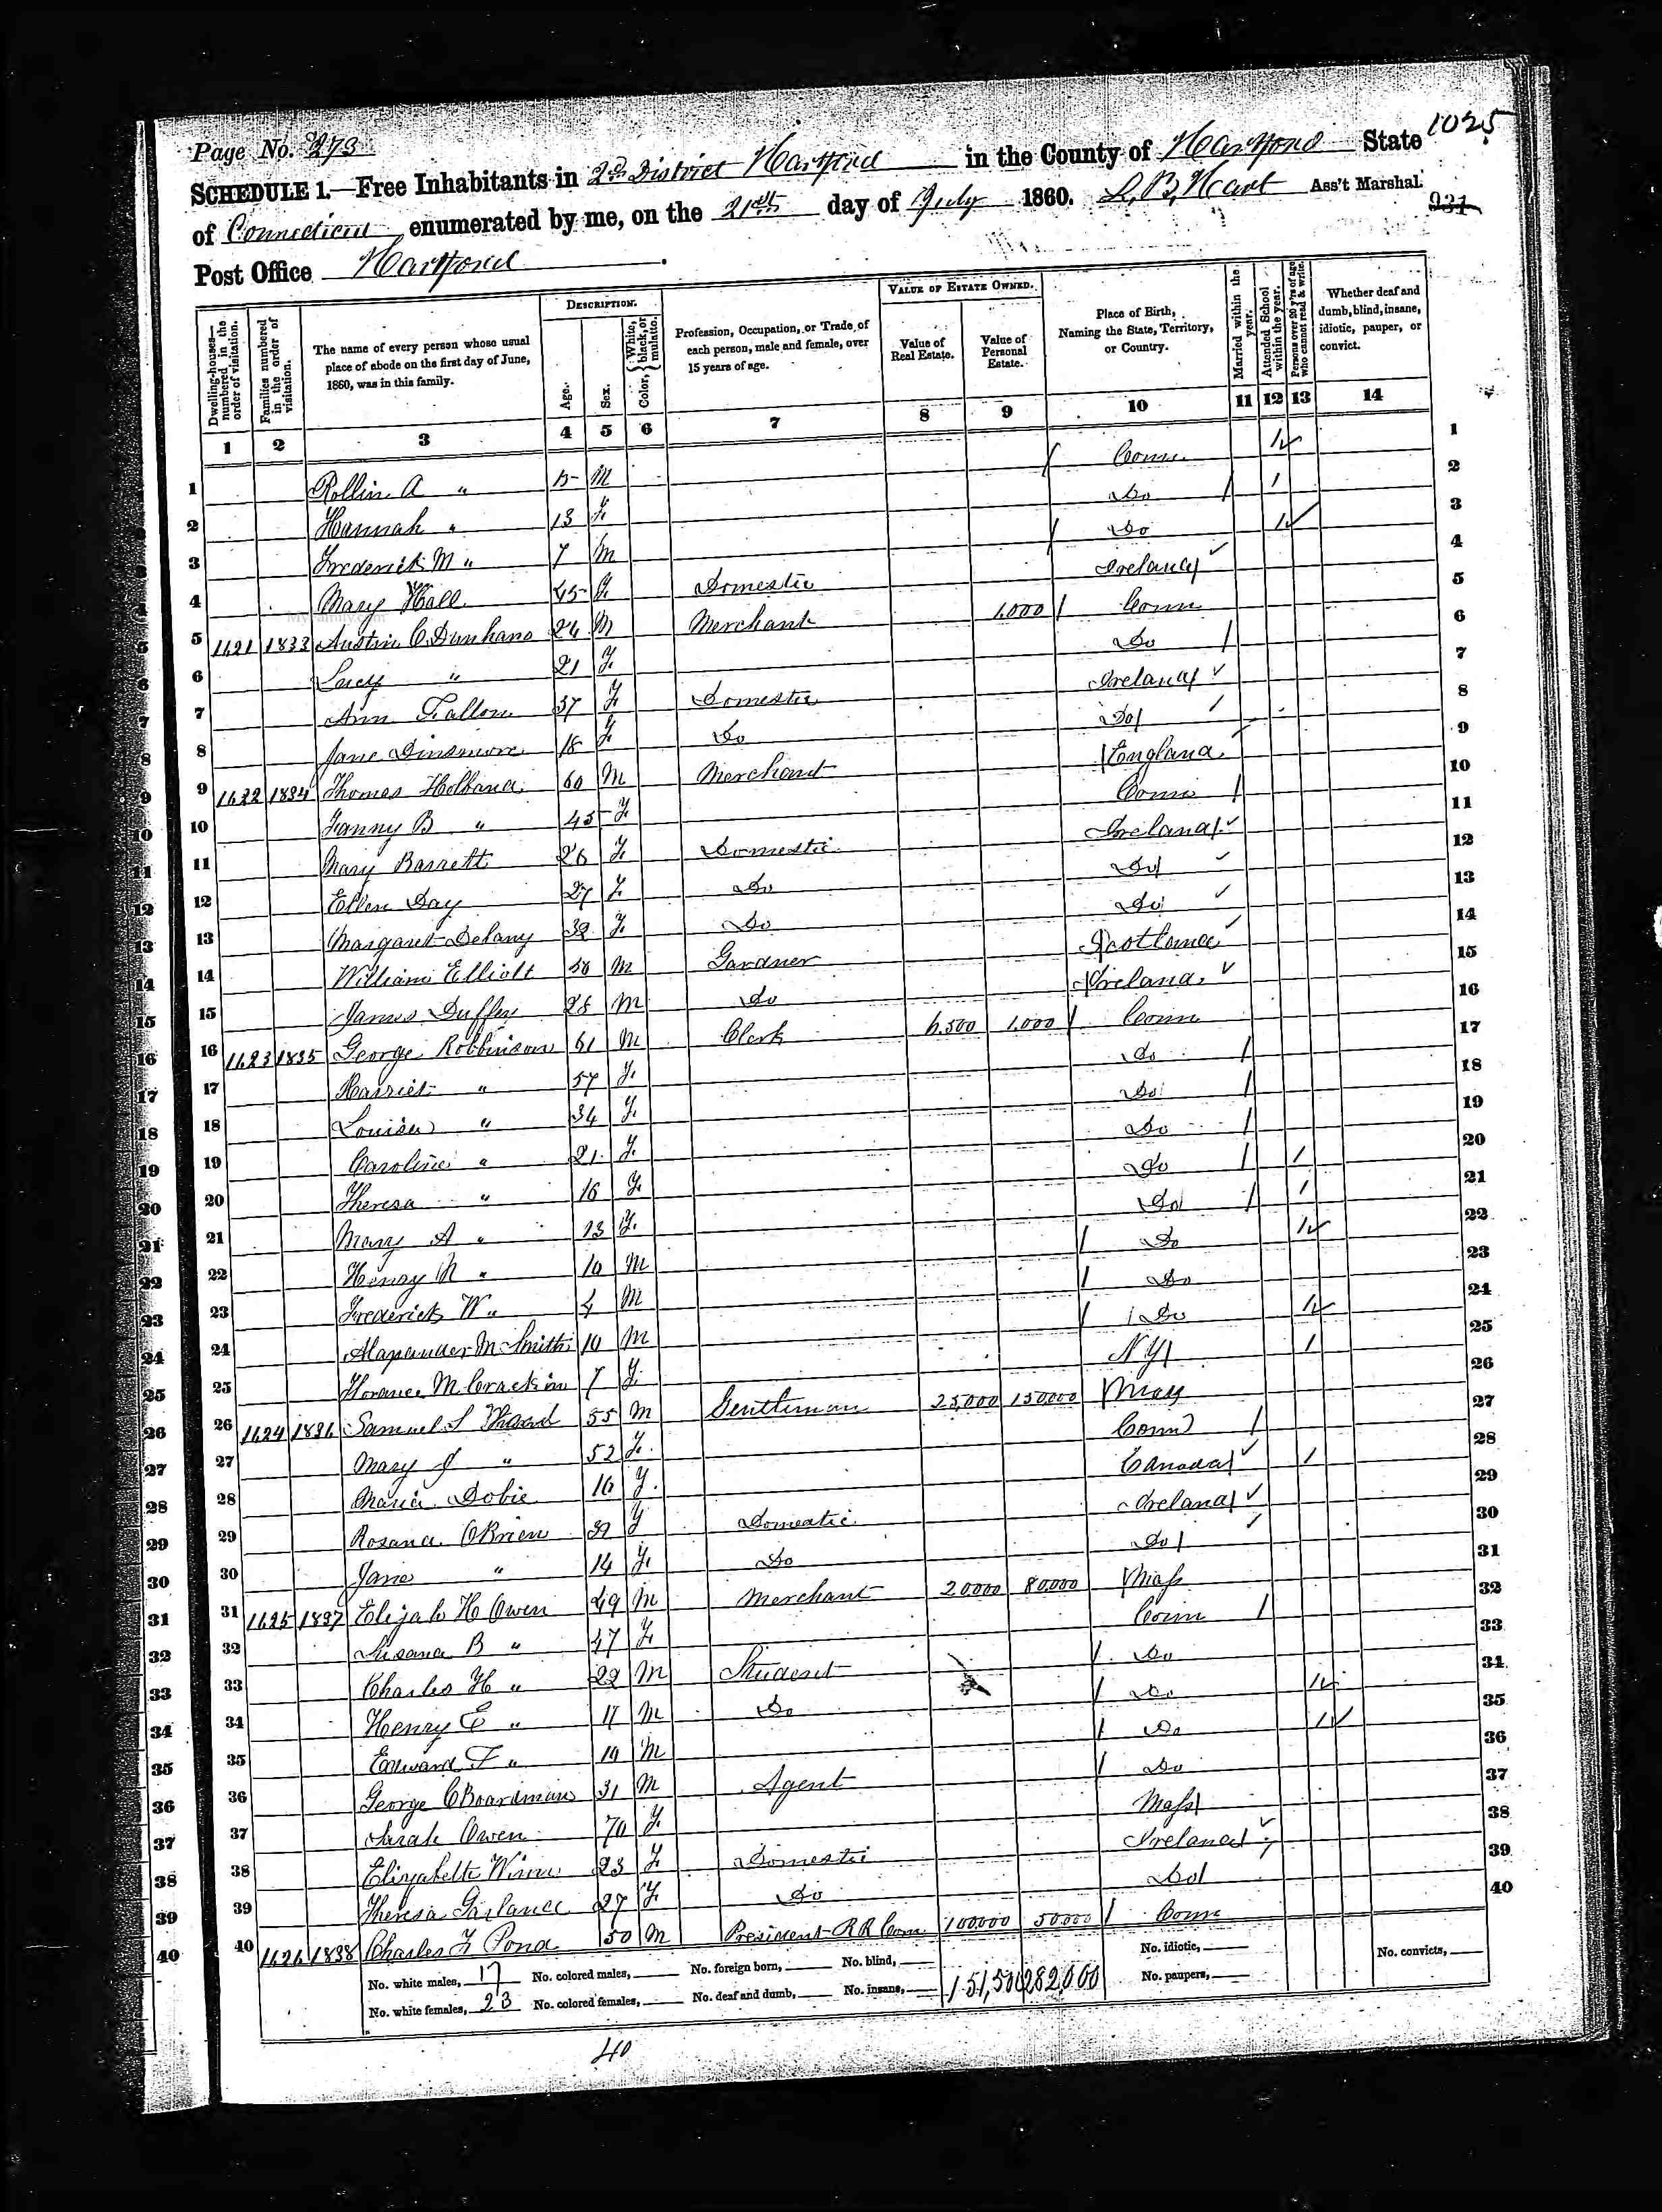 1025
Page No. 273
SCHEDULE 1.—Free Inhabitants in 2nd District Hartford in the County of Hartford State
of Connecticut enumerated by me, on the 21st day of July 1860. L. B. Hart Ass't Marshal.
931
Post Office Hartford
DESCRIPTION.
VALUE OF ESTATE OWNED.
Dwelling-houses—numbered in the order of visitation.
Families numbered in the order of visitation.
The name of every person whose usual place of abode on the first day of June, 1860, was in this family.
Age.
Sex.
Color, White, black, or mulatto.
Profession, Occupation, or Trade of each person, male and female, over 15 years of age.
Value of Real Estate.
Value of Personal Estate.
Place of Birth, Naming the State, Territory, or Country.
Married within the year.
Attended School within the year.
Persons over 20 y'rs of age who cannot read & write.
Whether deaf and dumb, blind, insane, idiotic, pauper, or convict.
1 2 3 4 5 6 7 8 9 10 11 12 13 14
1 Rollin A " 15 M / Conn 1 1
2 Hannah " 13 F Do / 1 2
3 Frederick M " 7 M / Do 1 3
4 Mary Hall 45 F Domestic Ireland 4
5 1621 1833 Austin C. Dunham 26 M Merchant 1,000 / Conn 5
6 Lucy " 21 F Do / 6
7 Ann Fallon 37 F Domestic Ireland 7
8 Jane Dinsmore 18 F Do Do 8
9 1622 1834 Thomas 60 M Merchant England 9
10 Fanny B " 45 F Conn / 10
11 Mary Barrett 26 F Domestic Ireland 11
12 Ellen Day 27 F Do Do 12
13 Margaret Delany 32 F Do Do 13
14 William Elliott 58 M Gardner Scotland 14
15 James Duffy 28 M Do Ireland 15
16 1623 1835 George Robbinson 61 M Clerk 6,500 1,000 / Conn 16
17 Harriet " 57 F Do / 17
18 Louisa " 34 F Do / 18
19 Caroline " 21 F Do / 19
20 Theresa " 16 F Do / 1 20
21 Mary A " 13 F Do / 1 21
22 Henry N " 10 M / Do 1 22
23 Frederick W " 4 M / Do 23
24 Alaxander M Smith 10 M / Do 1 24
25 Florence McCrackin 7 F N Y 1 25
26 1624 1836 Samuel S 55 M Gentleman 25,000 150000 Mass 26
27 Mary J " 52 F Conn / 27
28 Maria Dobie 16 F Canada 1 28
29 Rosana OBrien 32 F Domestic Ireland 29
30 Jane " 14 F Do Do 30
31 1625 1837 Elijah H Owen 49 M Merchant 20000 80000 Mass 31
32 Susana B " 47 F Conn / 32
33 Charles H " 22 M Student / Do 33
34 Henry E " 17 M Do / Do 1 34
35 Edward F " 10 M / Do 1 35
36 George C Boardman 31 M Agent / Do 36
37 Sarah Owen 70 F Mass 37
38 Elizabeth 23 F Domestic Ireland 38
39 Theresa Garland 27 F Do Do 39
40 1626 1838 Charles F Pond 50 M President R R Com 100000 50000 / Conn 40
No. white males, 17 No. colored males, No. foreign born, No. blind, No. idiotic, No. convicts,
No. white females, 23 No. colored females, No. deaf and dumb, No. insane, 151,500 282,000 No. paupers,
40